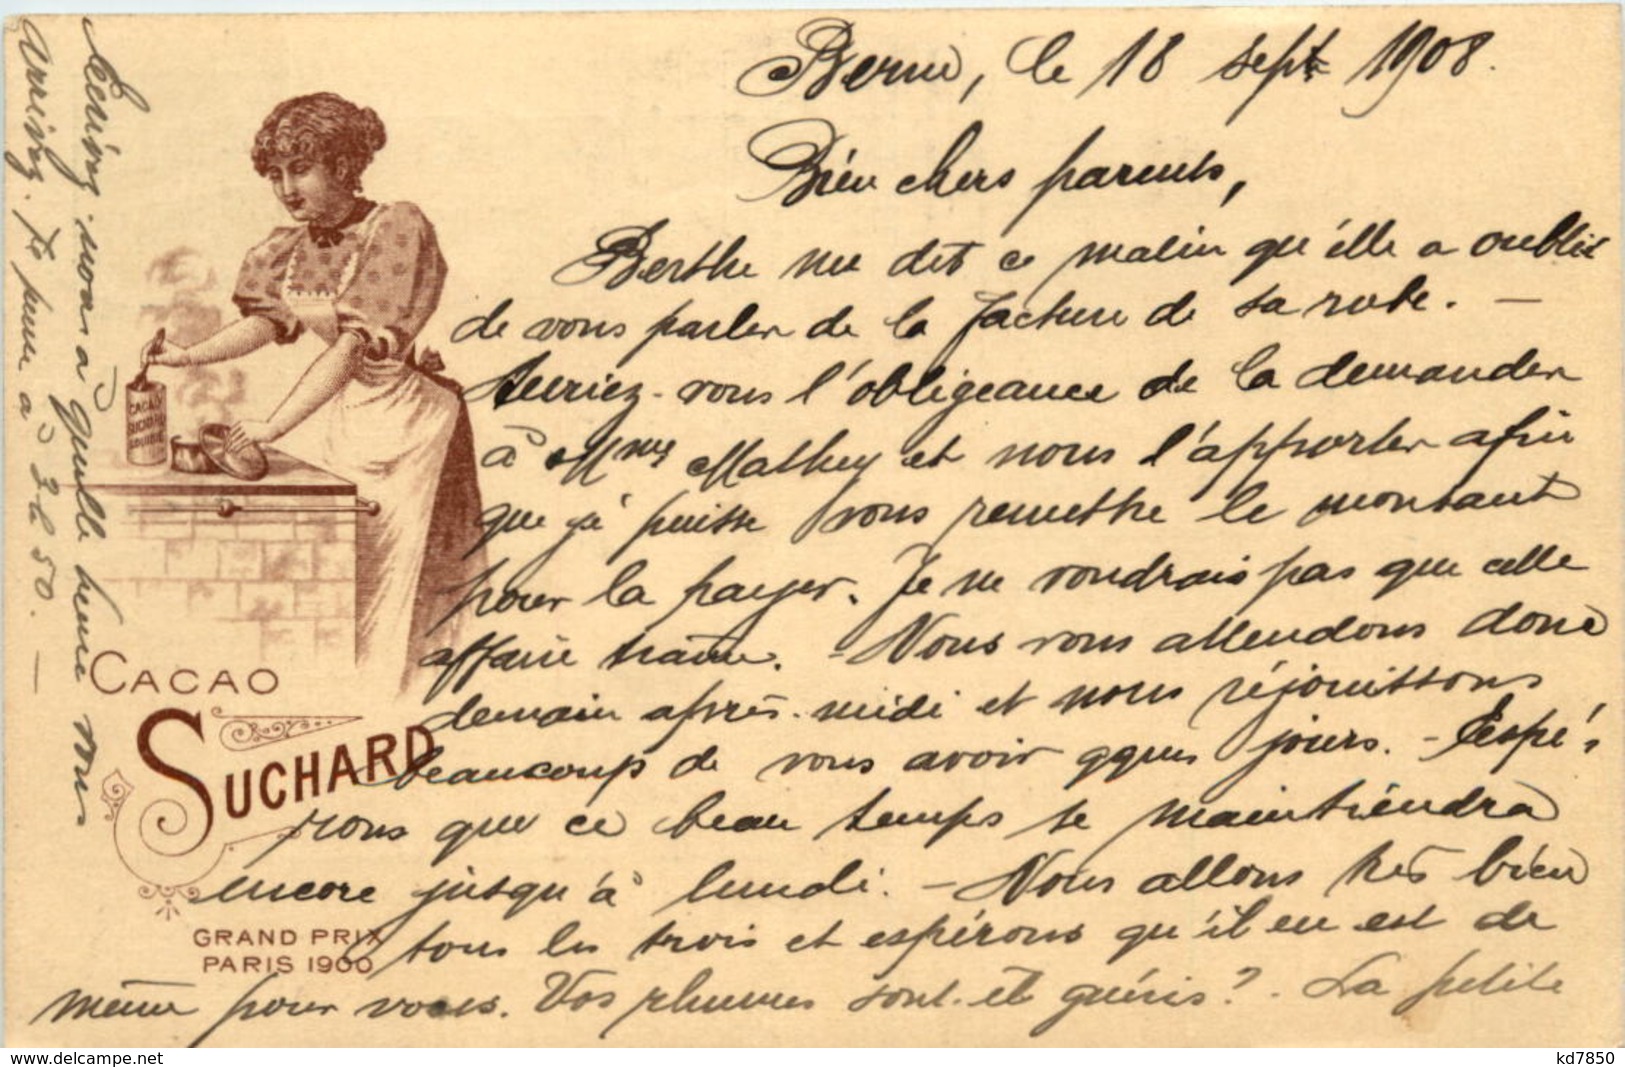 Berne, le 18 sept 1908.
Bien chers parents,
Berthe me dit ce matin qu'elle a oublié
de vous parler de la facture de sa robe. —
Auriez-vous l'obligeance de la demander
à Mmes Mathey et nous l'apporter afin
que je puisse vous remettre le montant
pour la payer. Je ne voudrais pas que cette
affaire traîne. - Nous vous attendons donc
demain après-midi et nous réjouissons
beaucoup de vous avoir qques jours. - Espé-
rons que ce beau temps se maintiendra
encore jusqu'à lundi. - Nous allons très bien
tous les trois et espérons qu'il en est de
même pour vous. Vos rhumes sont-ils guéris? - La petite
Écrivez-nous à quelle heure vous
arrivez. Je pense à 3 h 50. —
CACAO
SUCHARD
SOLUBLE
CACAO
SUCHARD
GRAND PRIX
PARIS 1900
www.delcampe.net
kd7850